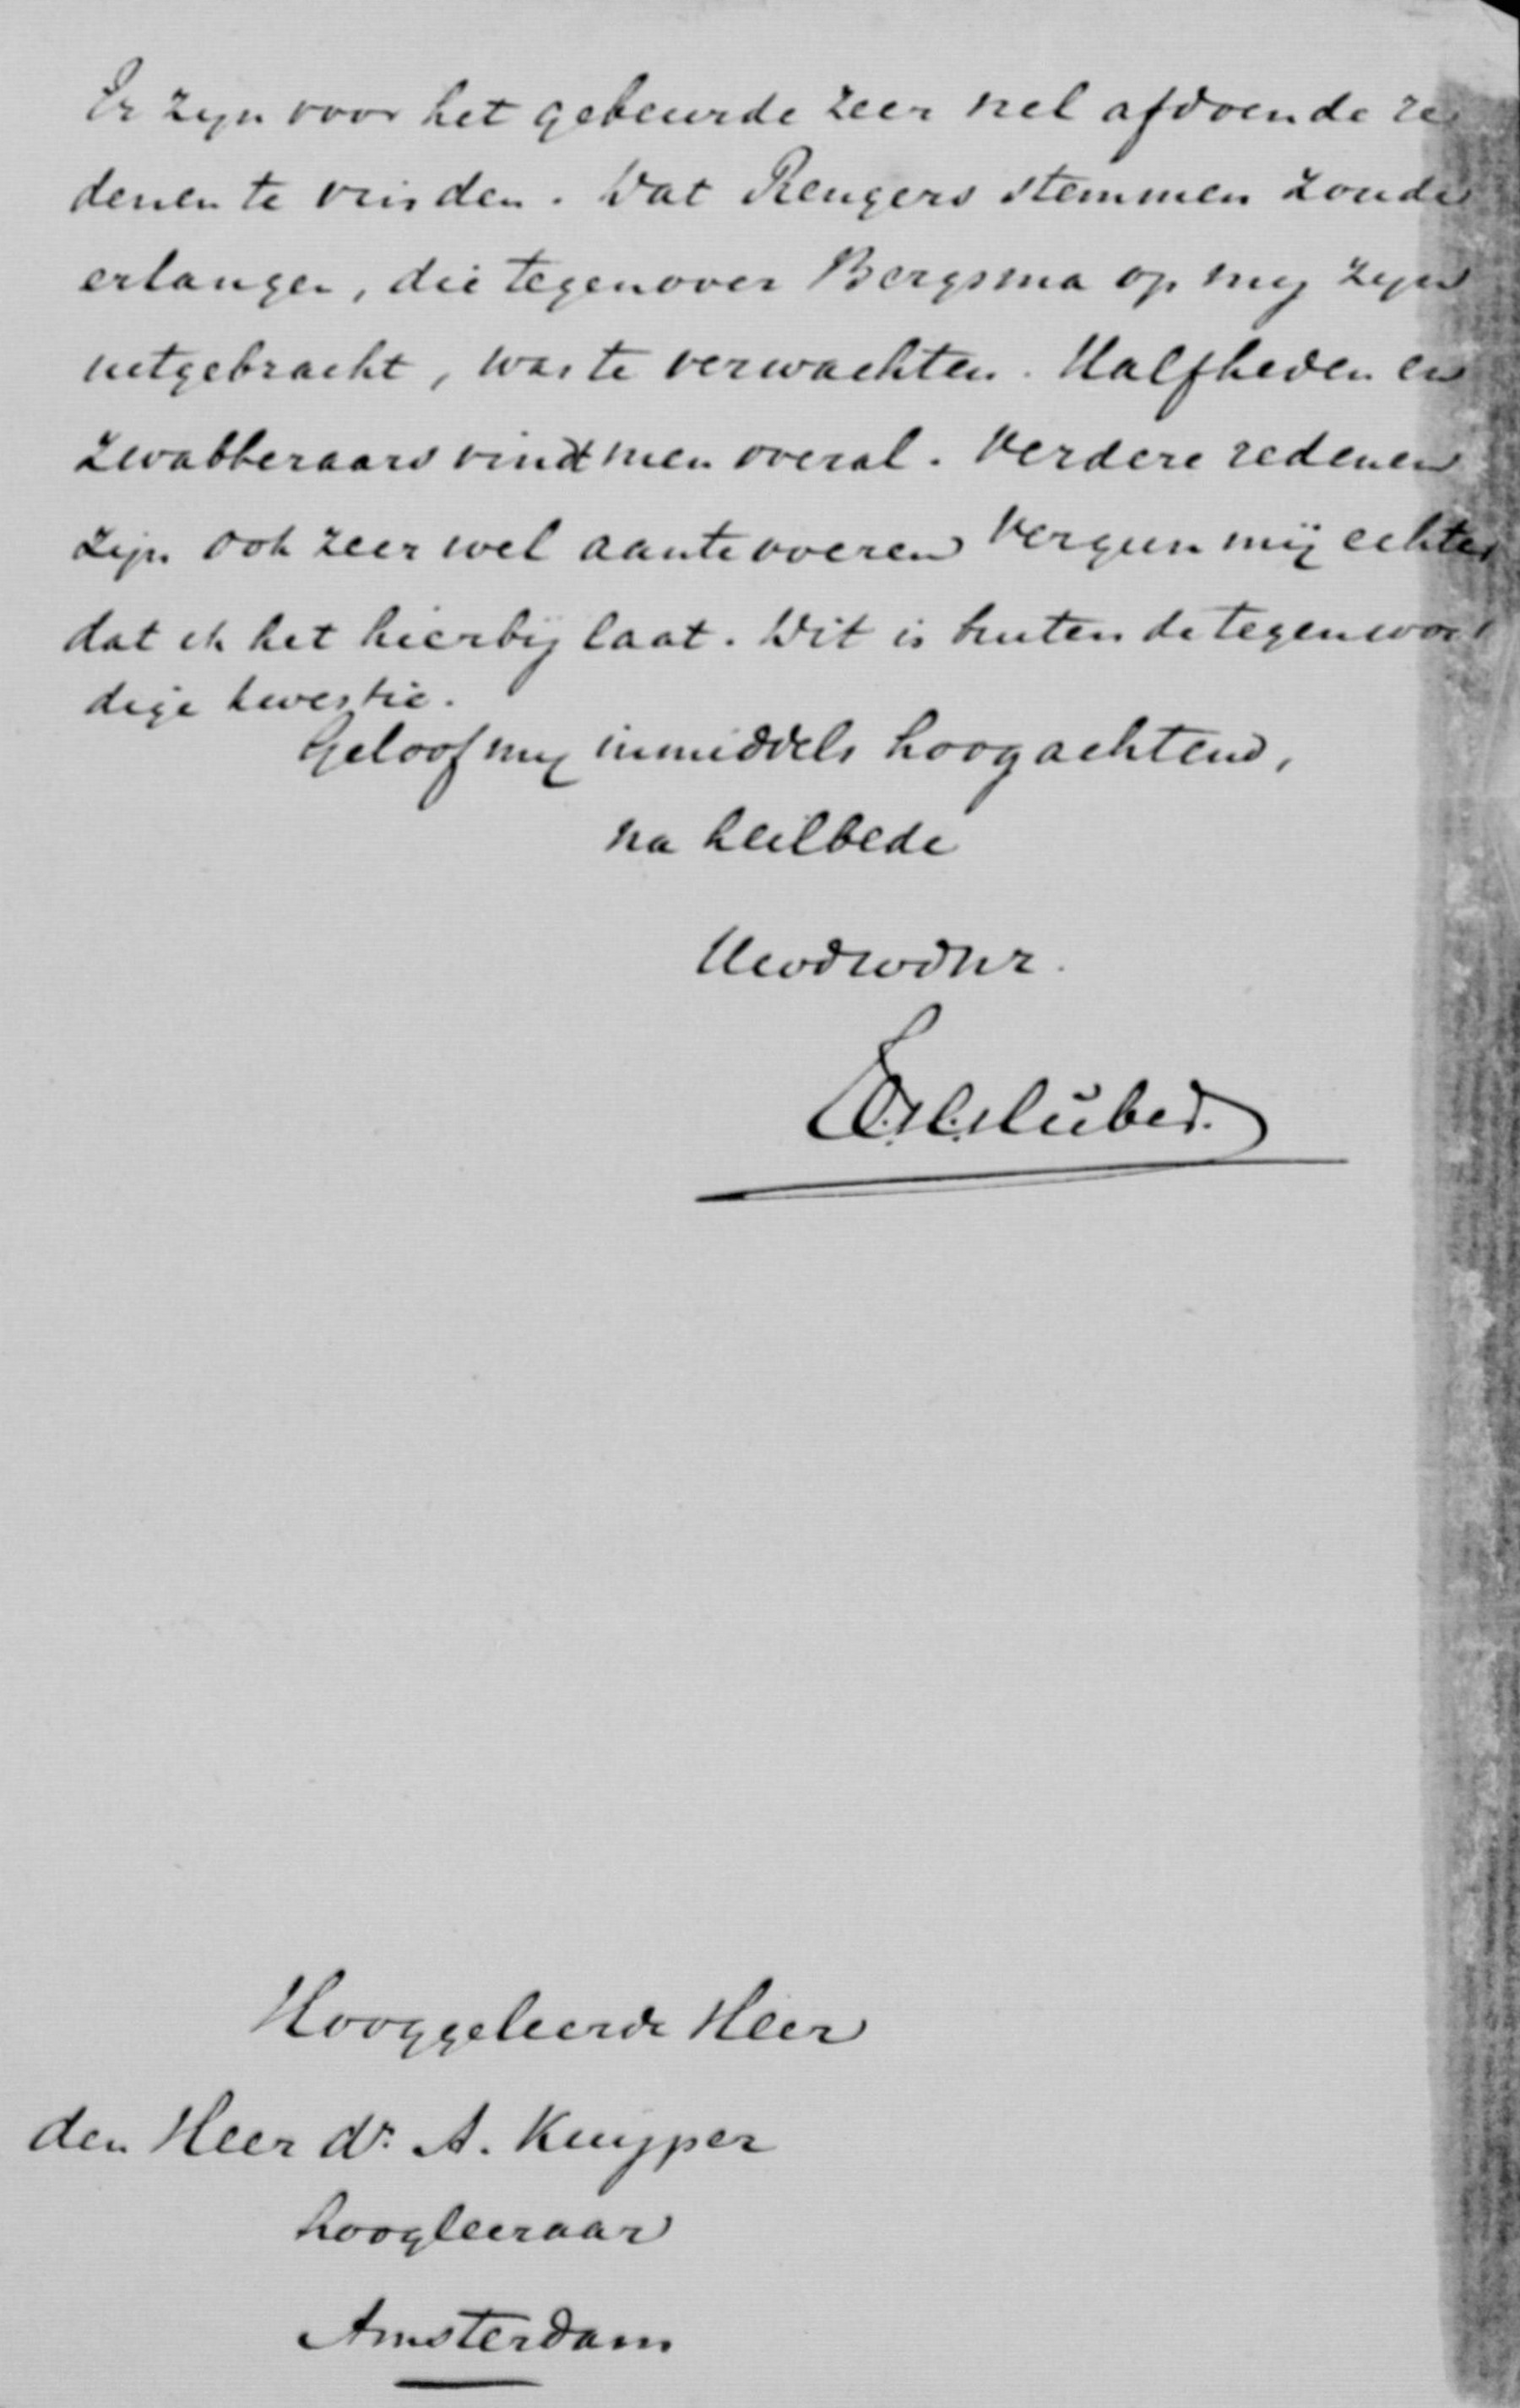 Er zijn voor het gebeurde zeer wel afdoende re
denen te vinden. Dat Rengers stemmen zoude
erlangen, die tegenover Bergsma op mij zijn
uitgebracht, was te verwachten. Halfheden en
zwabberaars vindt men overal. Verdere redenen
zijn ook zeer wel aantevoeren Vergun mij echter
dat ik het hierbij laat. Dit is buiten de tegenwoor
dige kwestie.
Geloof mij inmiddels hoogachtend,
na heilbede
Uwdwdnr.
Hooggeleerde Heer
den Heer dr. A. Kuyper
hoogleeraar
Amsterdam